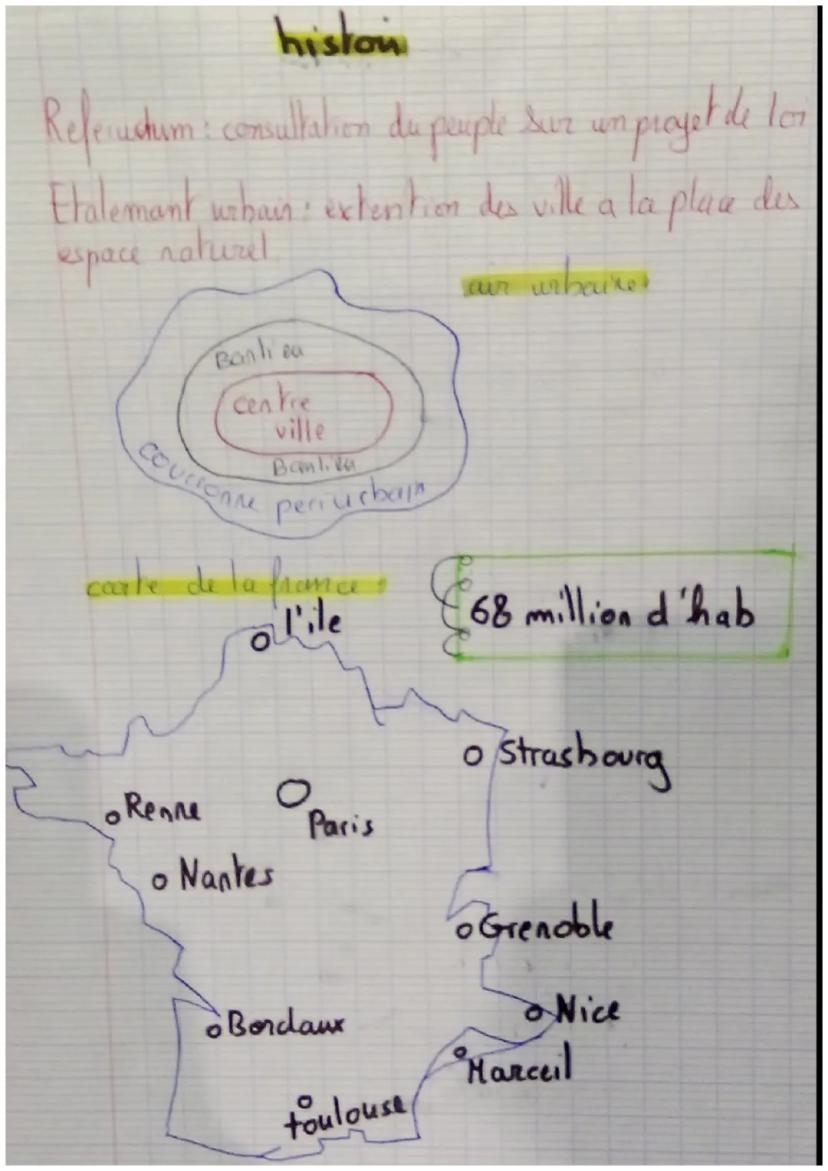 histoir
Referudum : consultation du peuple sur un projet de loi
Etalemant urbain : extention des ville a la place des
espace naturel.
air urbaine
Banlieu
centre
ville
Banlieu
couronne periurbain
carte de la france :
68 million d'hab
l'ile
Strasbourg
Renne
Paris
Nantes
Grenoble
Nice
Bordaux
Marceil
toulouse